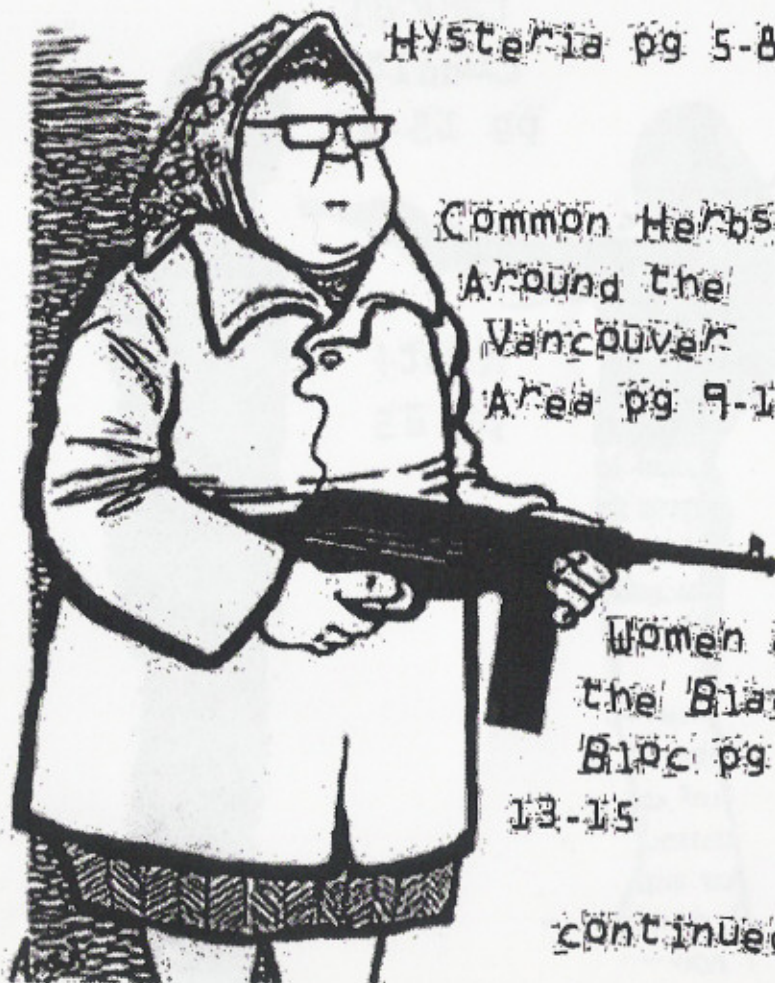 Hysteria pg 5-8
Common Herbs
Around the
Vancouver
Area pg 9-1
Women
the Bla
Bloc pg
13-15
continued